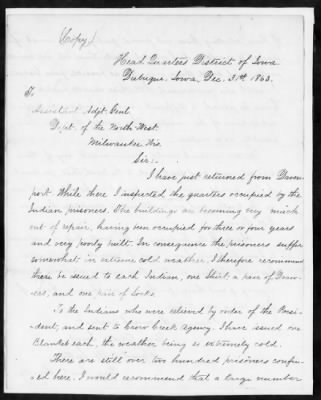 (Copy)
Head Quarters District of Iowa
Dubuque, Iowa, Dec. 31st 1863.
To
Assistant Adjt. Genl.
Dept. of the North-West.
Milwaukee, Wis.
Sir:
I have just returned from Daven-
port. While there I inspected the quarters occupied by the
Indian prisoners. The buildings are becoming very much
out of repair, having been occupied for three or four years
and very poorly built. In consequence the prisoners suffer
somewhat in extreme cold weather. I therefore recommend
there be issued to each Indian, one Shirt a pair of Draw-
ers, and one pair of Socks.
To the Indians who were relieved by order of the Presi-
dent, and sent to Crow Creek Agency, I have issued one
Blanket each, the weather being so extremely cold.
There are still over two hundred prisoners confin-
ed here. I would recommend that a large number